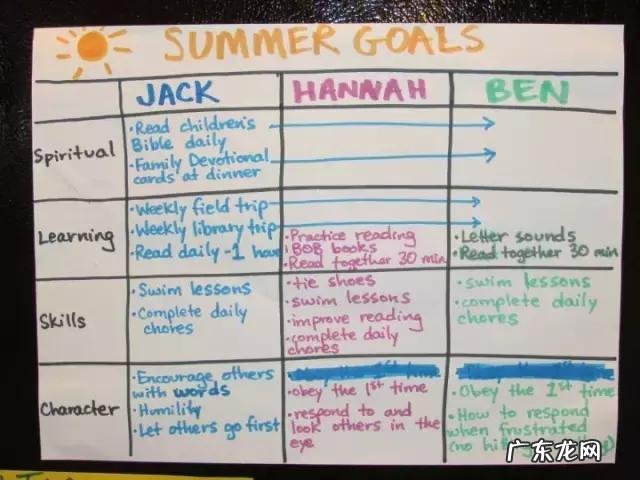 SUMMER GOALS
JACK
HANNAH
BEN
Spiritual
• Read children's
Bible daily
• Family Devotional
cards at dinner
Learning
• Weekly field trip
• Weekly library trip
• Read daily - 1 hour
• Practice reading
BOB books
• Read together 30 min
• Letter sounds
• Read together 30 min
Skills
• Swim lessons
• Complete daily
chores
• tie shoes
• swim lessons
• improve reading
• complete daily
chores
• swim lessons
• complete daily
chores
Character
• Encourage others
with words
• Humility
• Let others go first
• obey the 1st time
• respond to and
look others in the
eye
• Obey the 1st time
• How to respond
when frustrated
(no
广东龙网